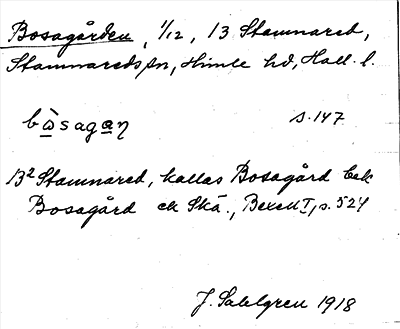 Bosagården, 1/12, 13 Stamnared,
Stamnareds sn, Himle hd, Hall. l.
bòsagaɲ s. 147
13² Stamnared, kallas Bosagård
Bosagård ek Skå., Bexell I, s. 524
J. Sahlgren 1918